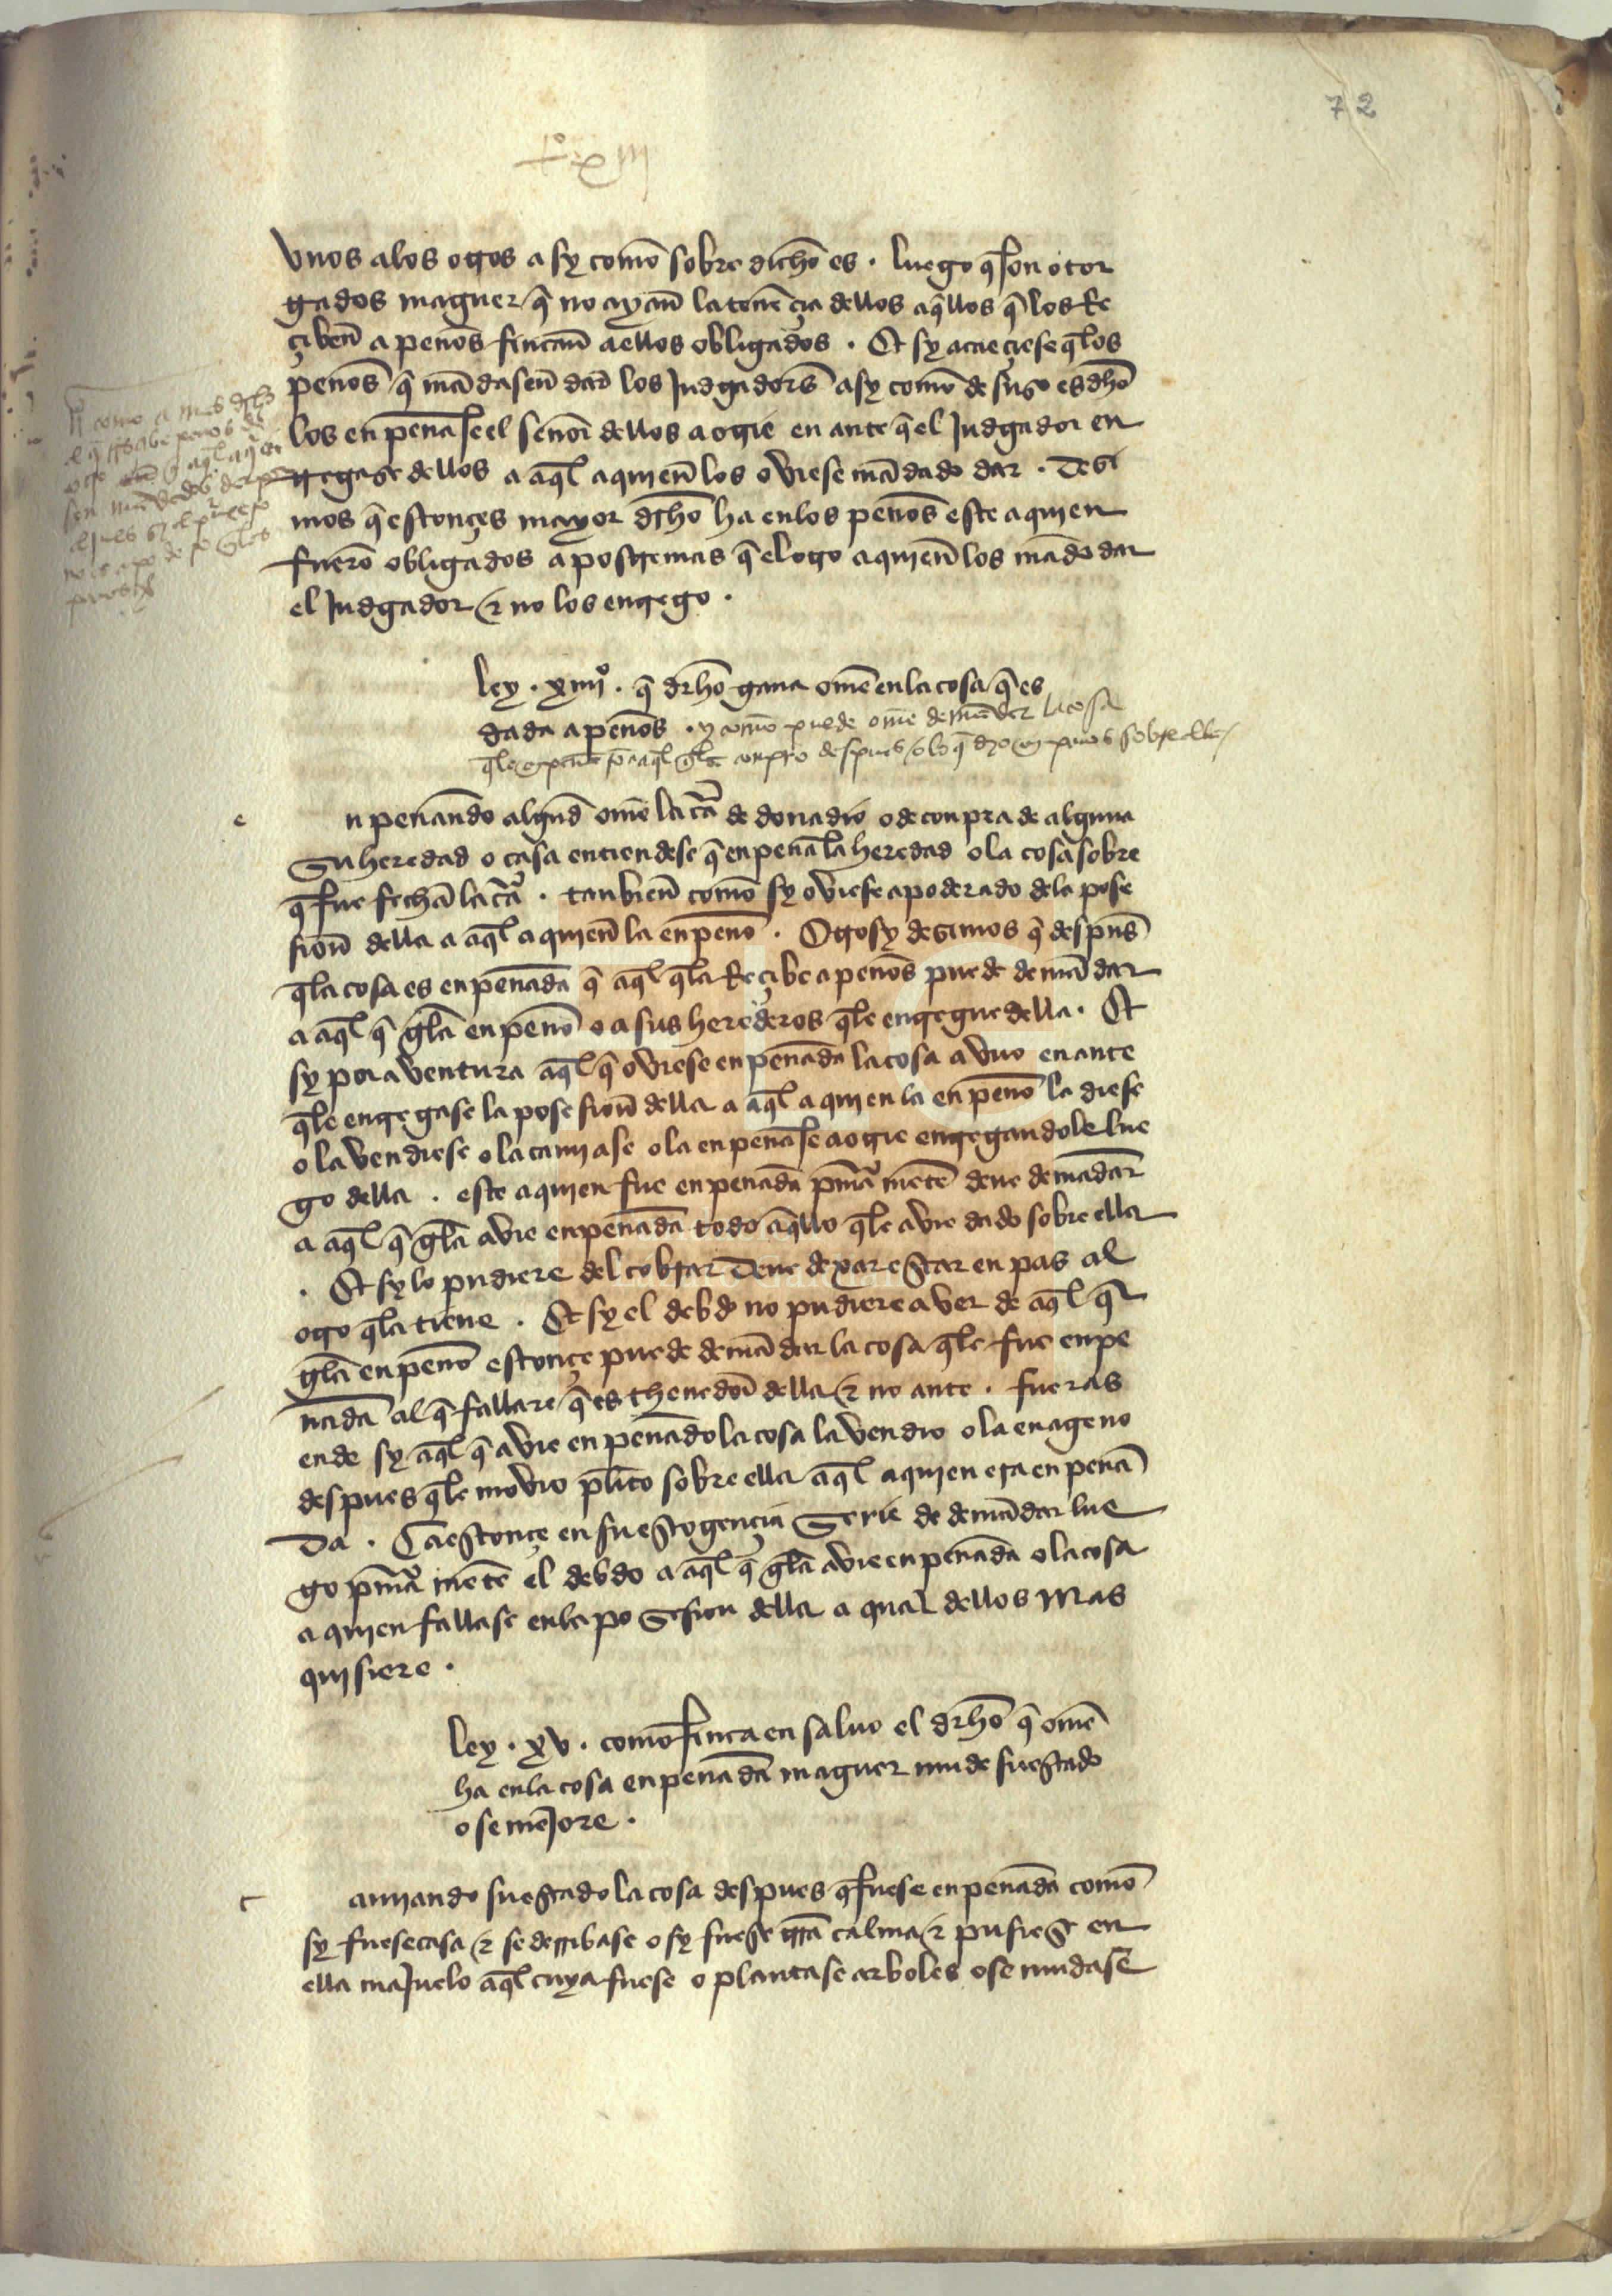 72
tº xiii
vnos a los otros asy comō sobre dichō es . luego q̄ son otor
gados maguer q̄ no ayan̄ la tenēçia dellos aq̄llos q̄ los Re
çiben̄ a penōs fincan̄ a ellos obligados . Et sy acaeçiese q̄ los
penōs q̄ mādasen̄ dar los Judgadors̄ asy comō de suso es dhō
los enpenāse el senōr dellos a otrie en ante q̄ el Judgador en
tregase dellos a aq̄l a quien̄ los oviese mādado dar . Desi
mos q̄ estonçes mayor drhō ha en los penōs este a quien
fuerō obligados a postremas q̄ el otro a quien̄ los mādo dar
el Judgador & no los entrego .
ley . xiiijº . q̄ drhō gana omē en la cosa q̄ es
dada a penōs . y comō puede omē demādar la cosa
q̄ le enpenārō a aq̄l q̄ la conpro despues o lo q̄ dio en penos sobre ella
e
n penando algund̄ omē la cr̄a de donadio o de conpra de alguna
su heredad o casa entiendese q̄ enpenā la heredad o la cosa sobre
q̄ fue fechā la cr̄a . tanbien̄ comō sy oviese apoderado de la pose
sion̄ della a aq̄l a quien̄ la enpenō . Otrosy desimos q̄ despus̄
q̄ la cosa es enpenāda q̄ aq̄l q̄ la Reçibe a penōs puede demādar
a aq̄l q̄ gela enpenō o a sus herederos q̄ le entregue della . Et
sy por aventura aq̄l q̄ oviese enpenāda la cosa a vno en ante
q̄ le entregase la posesion̄ della a aq̄l a quien la enpenō la diese
o la vendiese o la camiase o la enpenāse a otrie entregandole lue
go della . este a quien fue enpenāda pm̄a mētē deue demādar
a aq̄l q̄ gela avie enpenāda todo aq̄llo q̄ le avie dado sobre ella
. Et sy lo pudiere del cobrar Deue dexar estar en pas al
otro q̄ la tiene . Et sy el debdo no pudiere aver de aq̄l q̄
gela enpenō estonçe puede demādar la cosa q̄ le fue enpe
nāda al q̄ fallare q̄ es thenedor della & no ante . fueras
ende sy aq̄l q̄ avie enpenādo la cosa la vendio o la enageno
despues q̄ le movio pl̄ito sobre ella aq̄l a quien era enpenā
Da . Ca estonçe en su escogençia serie de demādar lue
go pm̄a mētē el debdo a aq̄l q̄ gela avie enpenāda o la cosa
a quien fallase en la posesion della a qual dellos mas
quisiere .
ley . xv . comō finca en saluo el drhō q̄ omē
ha en la cosa enpenāda maguer mude su estado
o se mēJore .
c
amiando su estado la cosa despues q̄ fuese enpenāda comō
sy fuese casa & se derribase o sy fuese trr̄a calma & pusiese en
ella maJuelo aq̄l cuya fuese o plantase arboles o se mudase